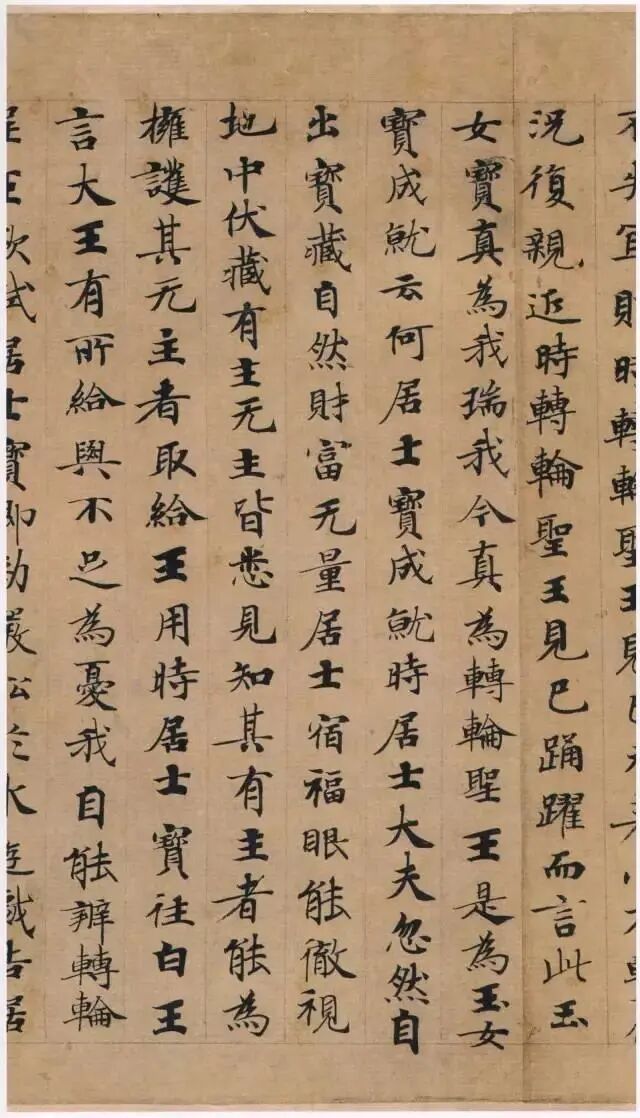 不失宜則時轉輪聖王見已
況復親近時轉輪聖王見已踊躍而言此玉
女寶真為我瑞我今真為轉輪聖王是為玉女
寶成就云何居士寶成就時居士大夫忽然自
出寶藏自然財富无量居士宿福眼能徹視
地中伏藏有主无主皆悉見知其有主者能為
擁護其无主者取給王用時居士寶往白王
言大王有所給與不足為憂我自能辦轉輪
王欲試居士寶即勅嚴舩於水遊戲告居